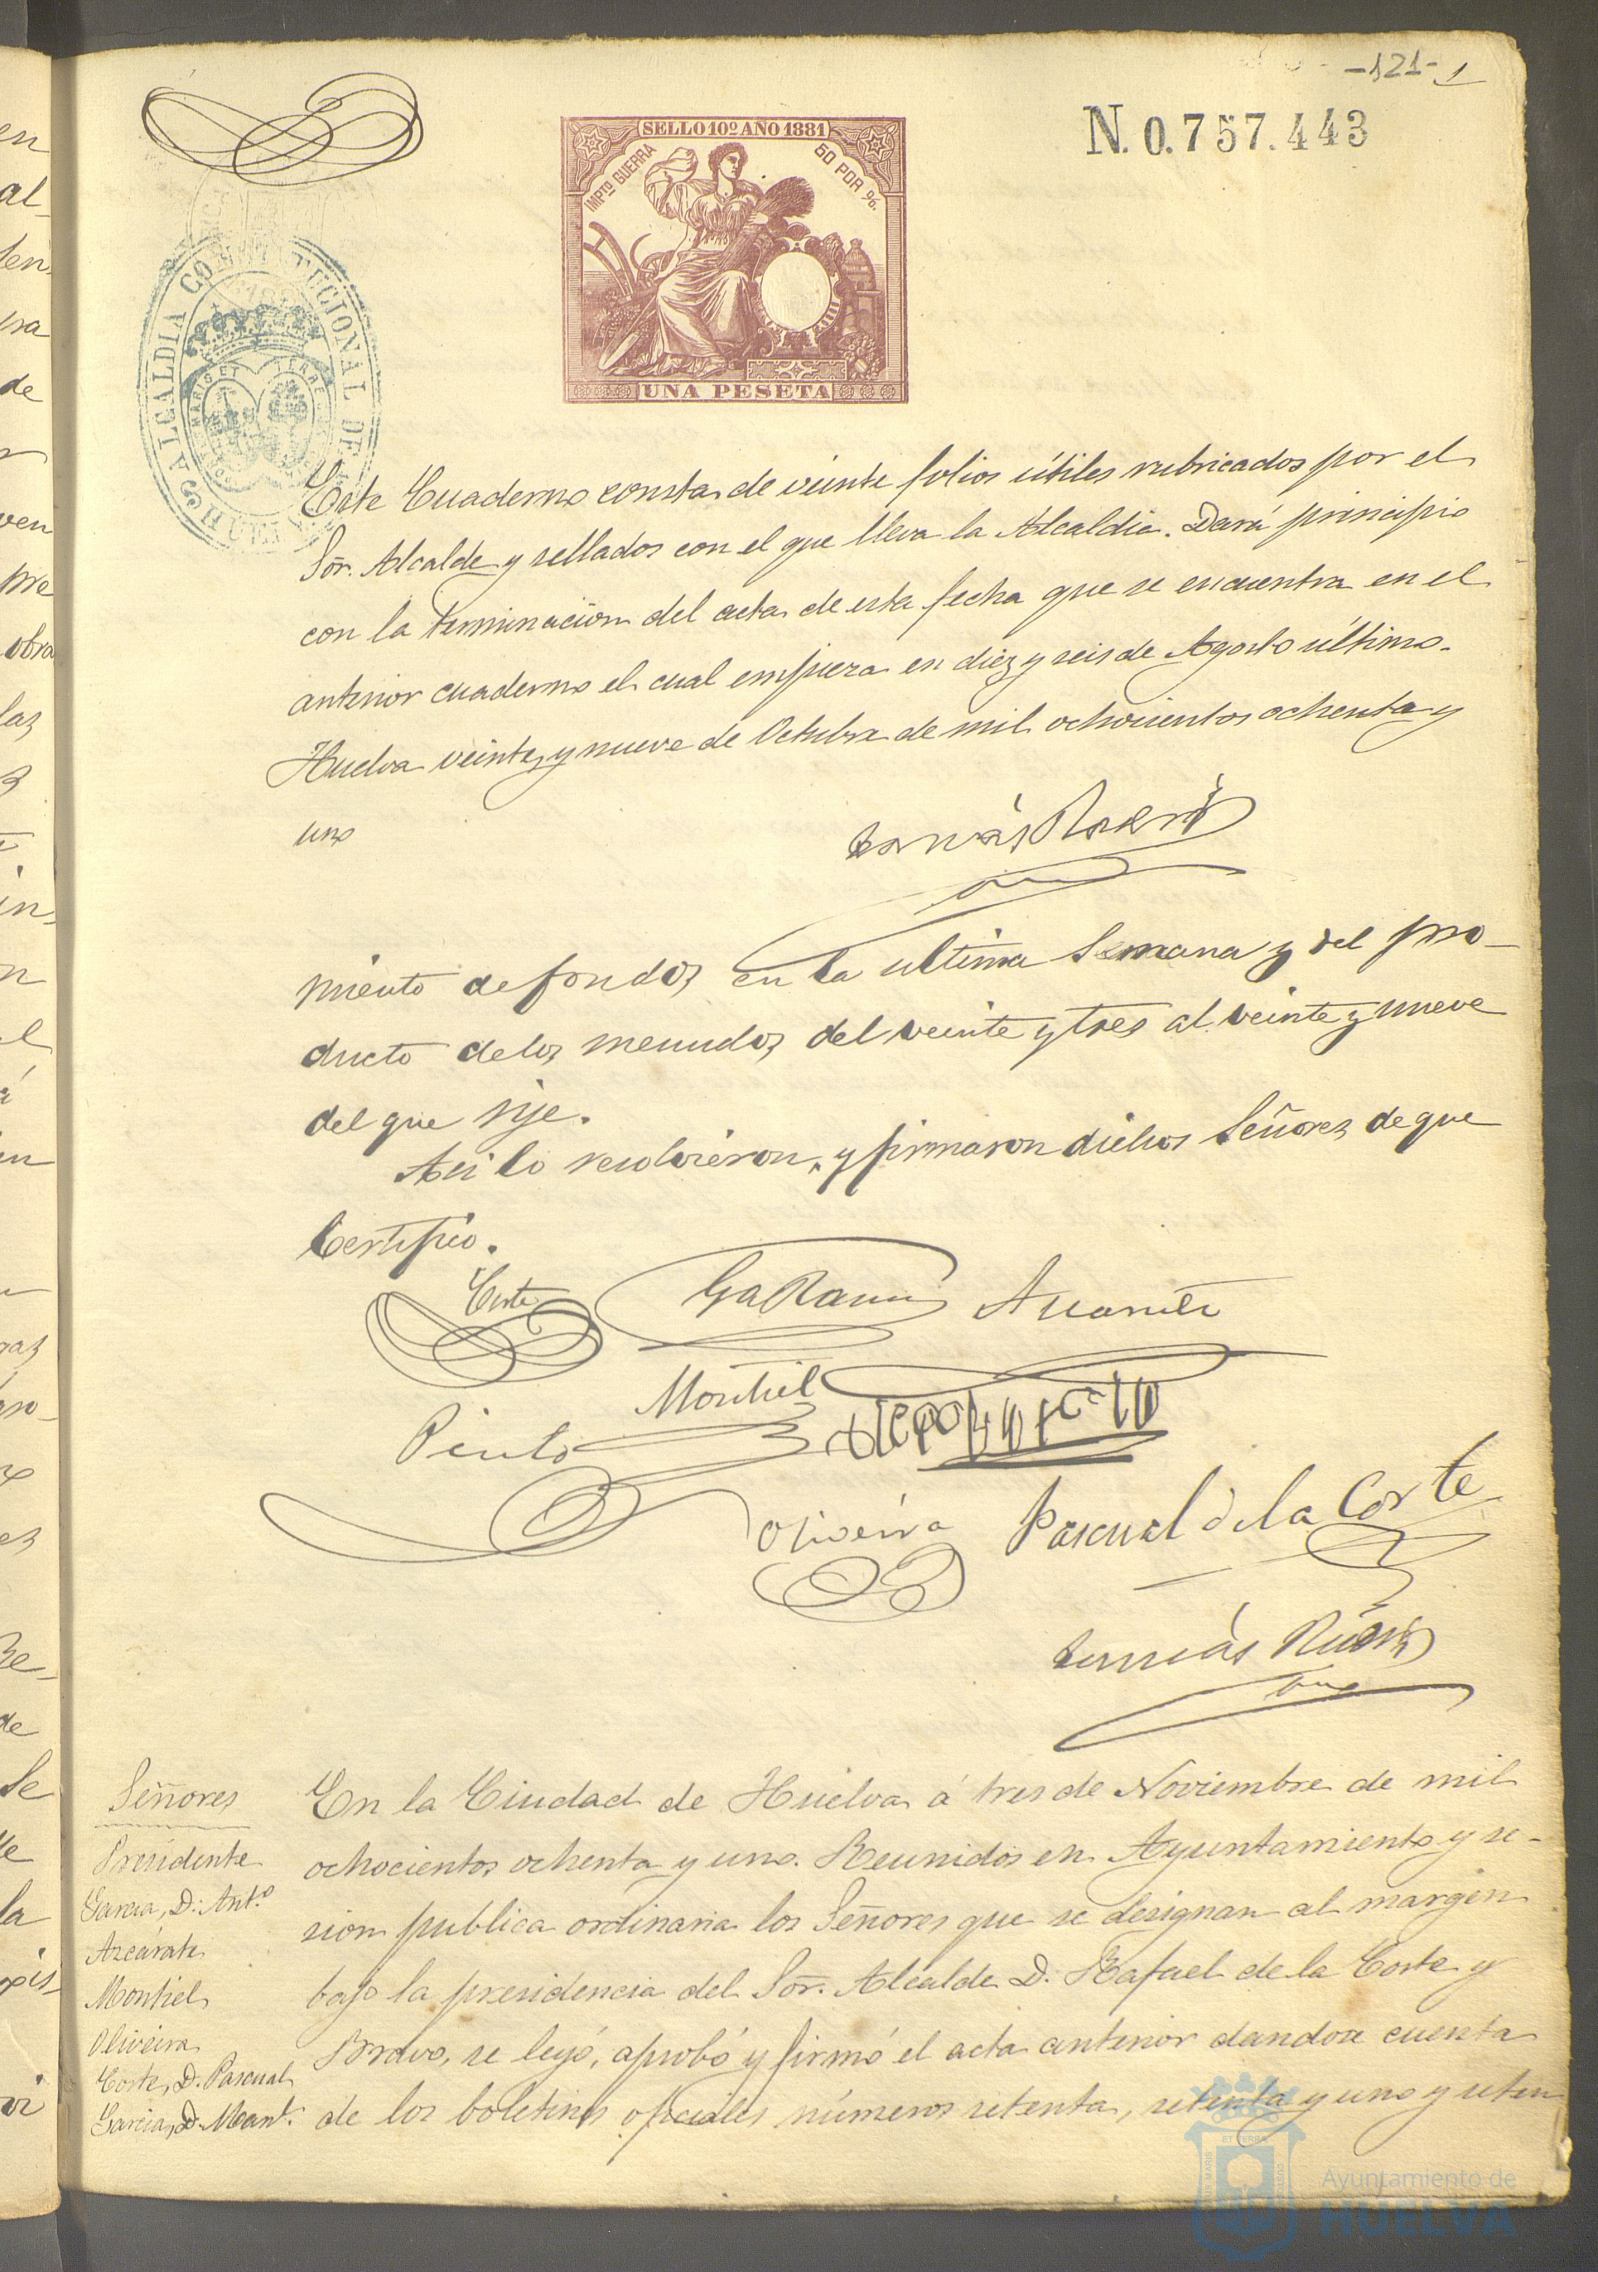 -121- 1
N. 0.757.443
SELLO 10º AÑO 1881
IMPTO GUERRA
50 POR %.
UNA PESETA
ALCALDIA CONSTITUCIONAL DE HUELVA
Este Cuaderno consta de veinte folios útiles rubricados por el
Sōr. Alcalde y sellados con el que lleva la Alcaldia. Dará principio
con la terminacion del acta de esta fecha que se encuentra en el
anterior cuaderno el cual empieza en diez y seis de Agosto último.
Huelva veinte y nueve de Octubre de mil ochocientos ochenta y
uno
Tomás
miento de fondos en la ultima Semana y del pro-
ducto de los menudos del veinte y tres al veinte y nueve
del que rije.
Asi lo resolvieron, y firmaron dichos Señores de que
Certifico.
Corte
Montiel
Oliveira
Pascual de la Corte
Tomás
Señores
Presidente
Garcia, D. Antº
Azcárate
Montiel
Oliveira
Corte, D. Pascual
Garcia, D. Manl.
En la Ciudad de Huelva á tres de Noviembre de mil
ochocientos ochenta y uno. Reunidos en Ayuntamiento y se-
sion publica ordinaria los Señores que se designan al margen
bajo la presidencia del Sōr. Alcalde D. Rafael de la Corte y
Bravo, se leyó, aprobó y firmó el acta anterior dandose cuenta
de los boletines oficiales números setenta, setenta y uno y seten
Ayuntamiento de
HUELVA